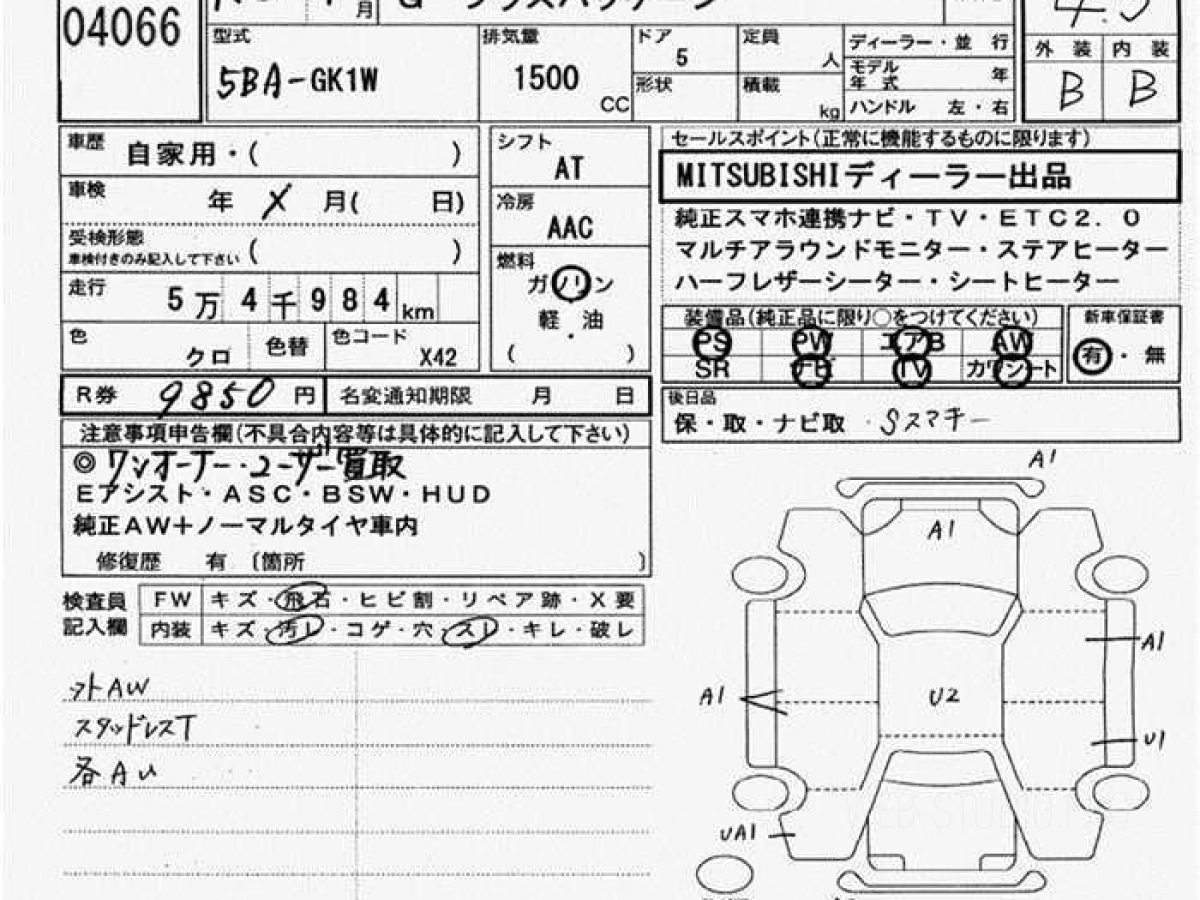 04066
月
G プラスパッケージ
4.5
型式
5BA-GK1W
排気量
1500
CC
ドア
5
形状
定員
人
積載
kg
ディーラー・並 行
モデル年式 年
ハンドル 左・右
外 装 内 装
B B
車歴
自家用・( )
車検
年 X 月( 日)
受検形態
車検付きのみ記入して下さい ( )
走行
5万4千984km
色
クロ
色替
色コード
X42
シフト
AT
冷房
AAC
燃料
ガソリン
軽・油
( )
セールスポイント(正常に機能するものに限ります)
MITSUBISHIディーラー出品
純正スマホ連携ナビ・TV・ETC2.0
マルチアラウンドモニター・ステアヒーター
ハーフレザーシーター・シートヒーター
装備品(純正品に限り○をつけてください)
PS PW エアB AW
SR ナビ TV カワシート
新車保証書
有・無
R券 9850 円
名変通知期限 月 日
後日品
保・取・ナビ取・Sスマキー
注意事項申告欄(不具合内容等は具体的に記入して下さい)
◎ワンオーナー・ユーザー買取
Eアシスト・ASC・BSW・HUD
純正AW+ノーマルタイヤ車内
修復歴 有 〔箇所 〕
検査員
記入欄
FW キズ・飛石・ヒビ割・リペア跡・X要
内装 キズ・汚レ・コゲ・穴・スレ・キレ・破レ
外AW
スタッドレスT
各AU
A1
A1
A1
A1
U2
U1
UA1